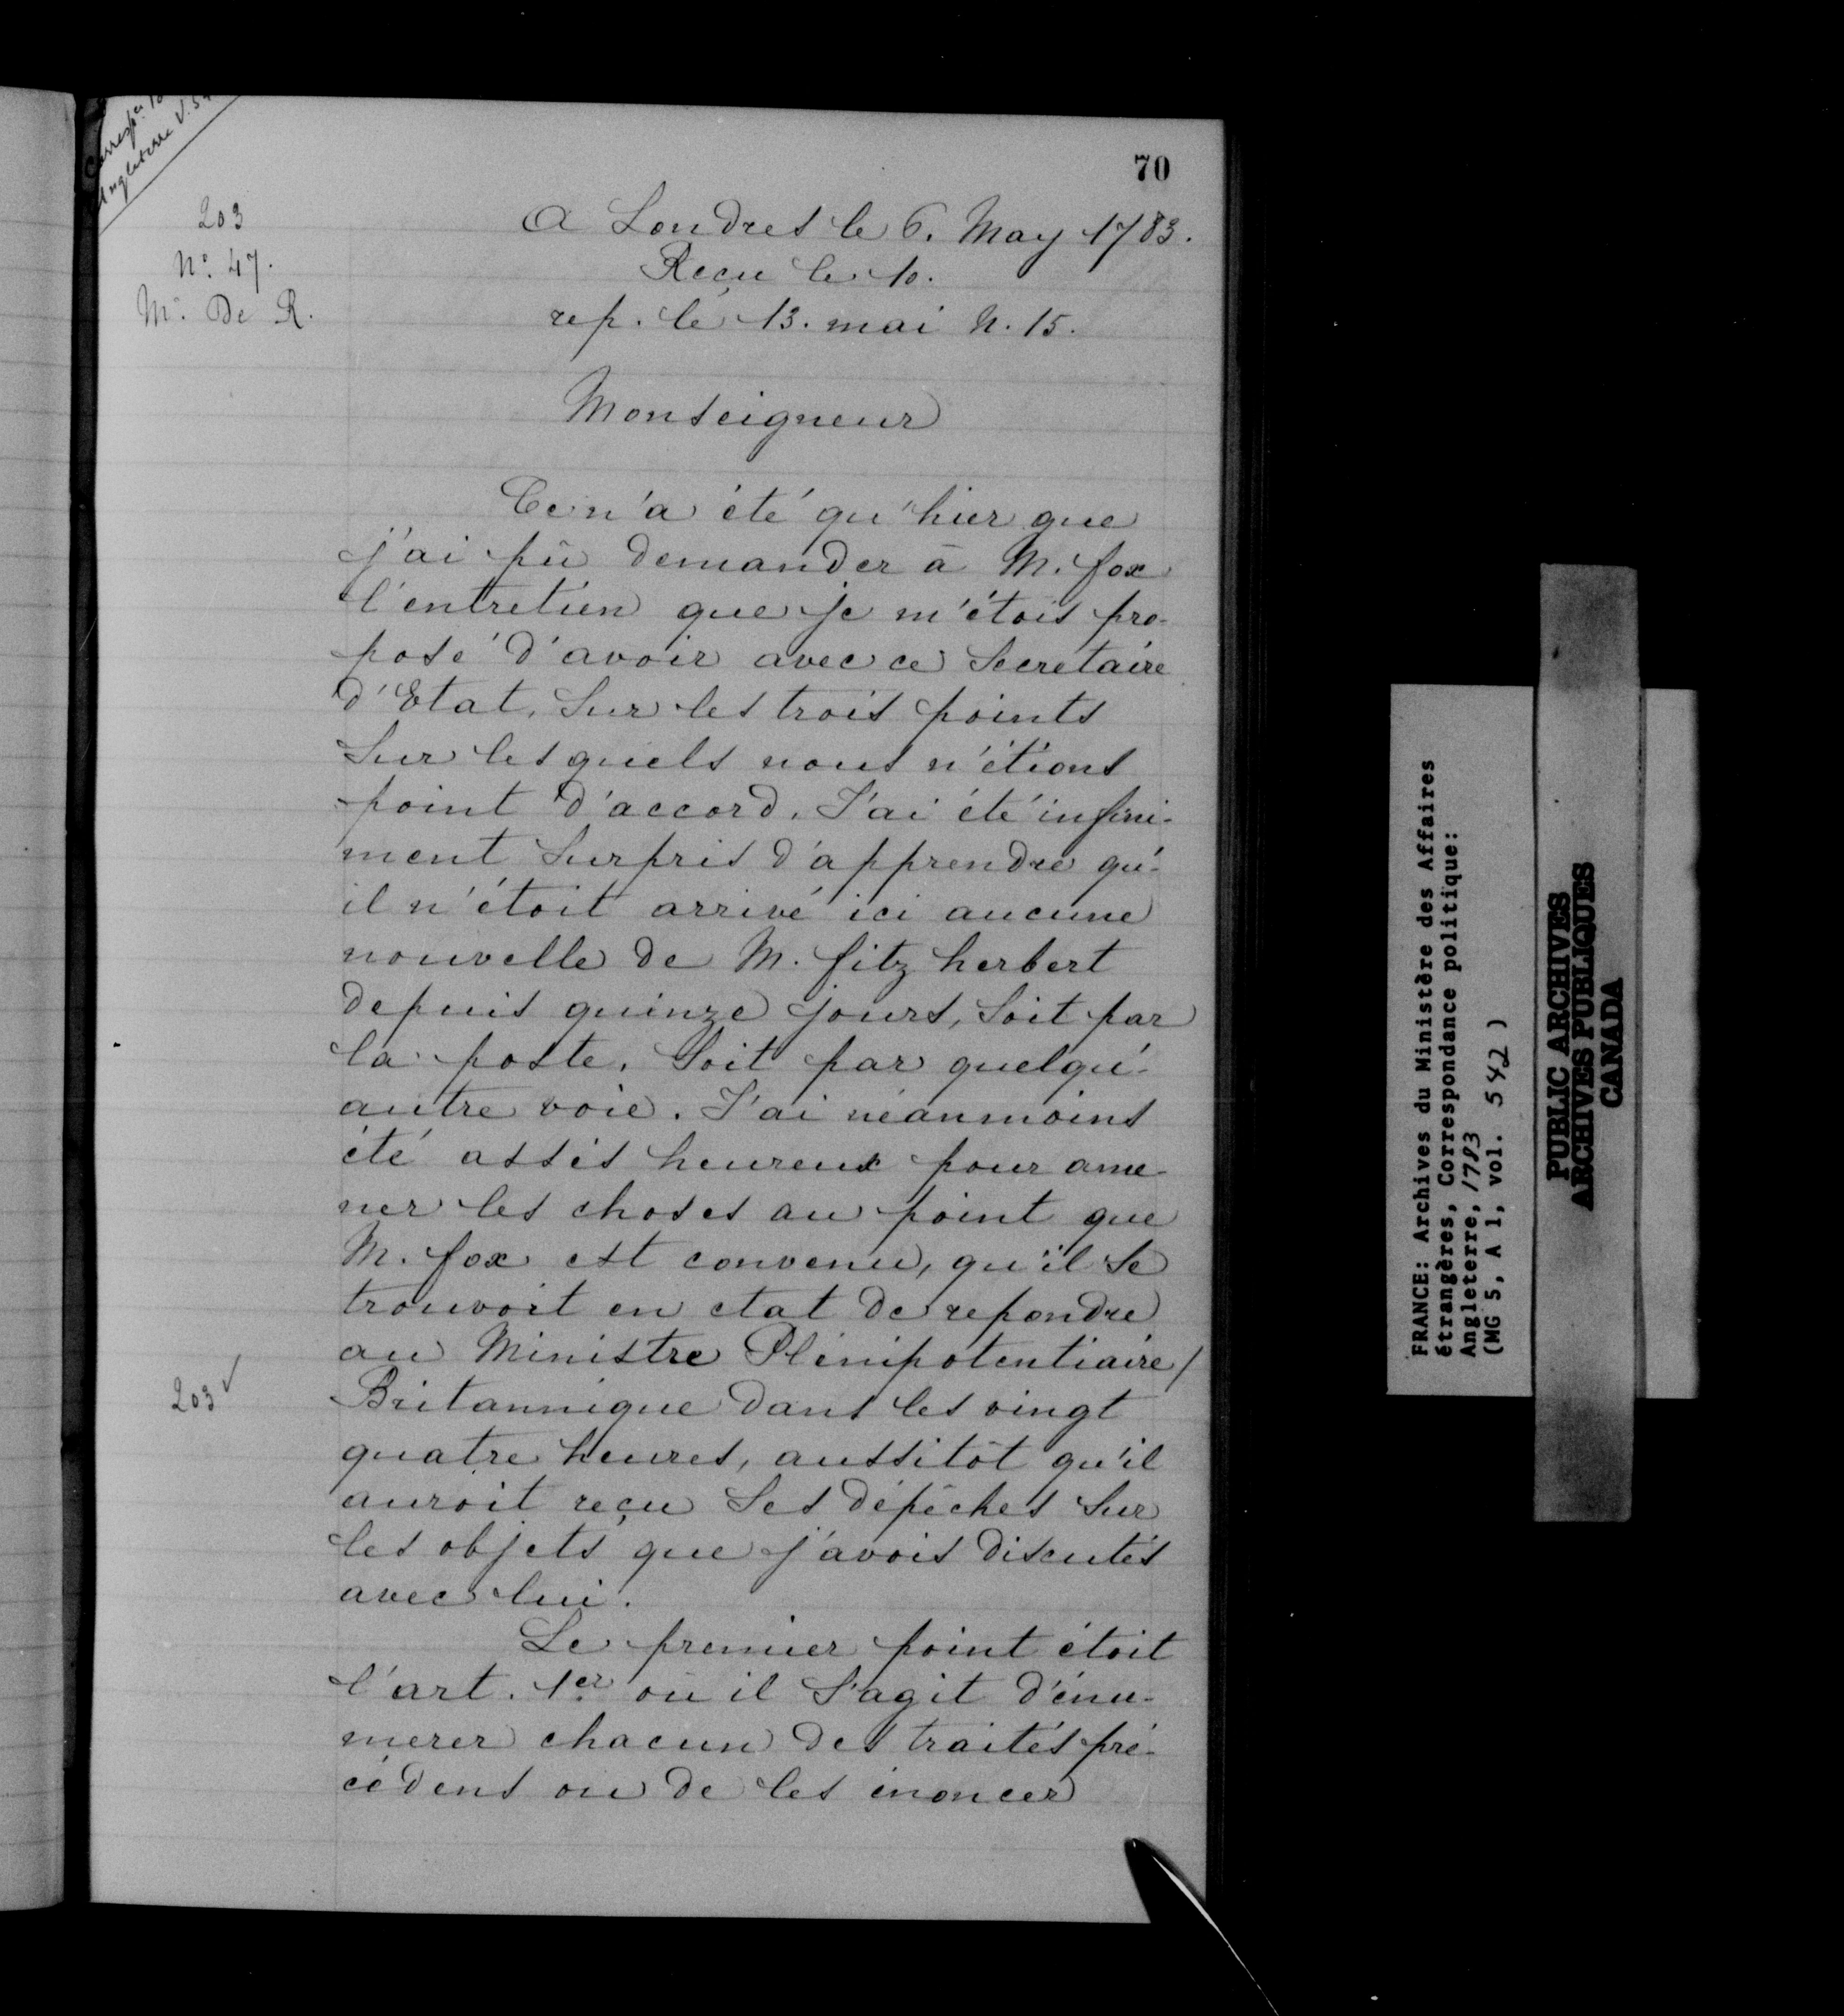 Corresp.ce
Angleterre V. 54
70
203
No. 47.
Mr. De R.
A Londres le 6. May 1783.
Reçu le 10.
rep. le 13. mai N. 15.
Monseigneur
Ce n'a été qu'hier que
j'ai pû demander à M. fox
l'entretien que je m'étois pro-
posé d'avoir avec ce Secretaire
d'Etat, Sur les trois points
Sur lesquels nous n'étions
point d'accord. J'ai été infini-
ment Surpris d'apprendre qu'-
il n'étoit arrivé ici aucune
nouvelle de M. fitz herbert
depuis quinze jours, Soit par
la poste, Soit par quelqu'-
autre voie. J'ai néanmoins
été assés heureux pour ame-
ner les choses au point que
M. fox est convenu, qu'il Se
trouvoit en etat de repondre
au Ministre Plénipotentiaire/
203 v
Britannique dans les vingt
quatre heures, aussitôt qu'il
auroit reçu Ses dépêches Sur
les objets que j'avois discutés
avec lui.
Le premier point étoit
l'art. 1er où il S'agit d'énu-
merer chacun des traités pré-
cédens ou de les énoncer
FRANCE: Archives du Ministère des Affaires
étrangères, Correspondance politique:
Angleterre, 1783
(MG 5, A 1, vol. 542 )
PUBLIC ARCHIVES
ARCHIVES PUBLIQUES
CANADA